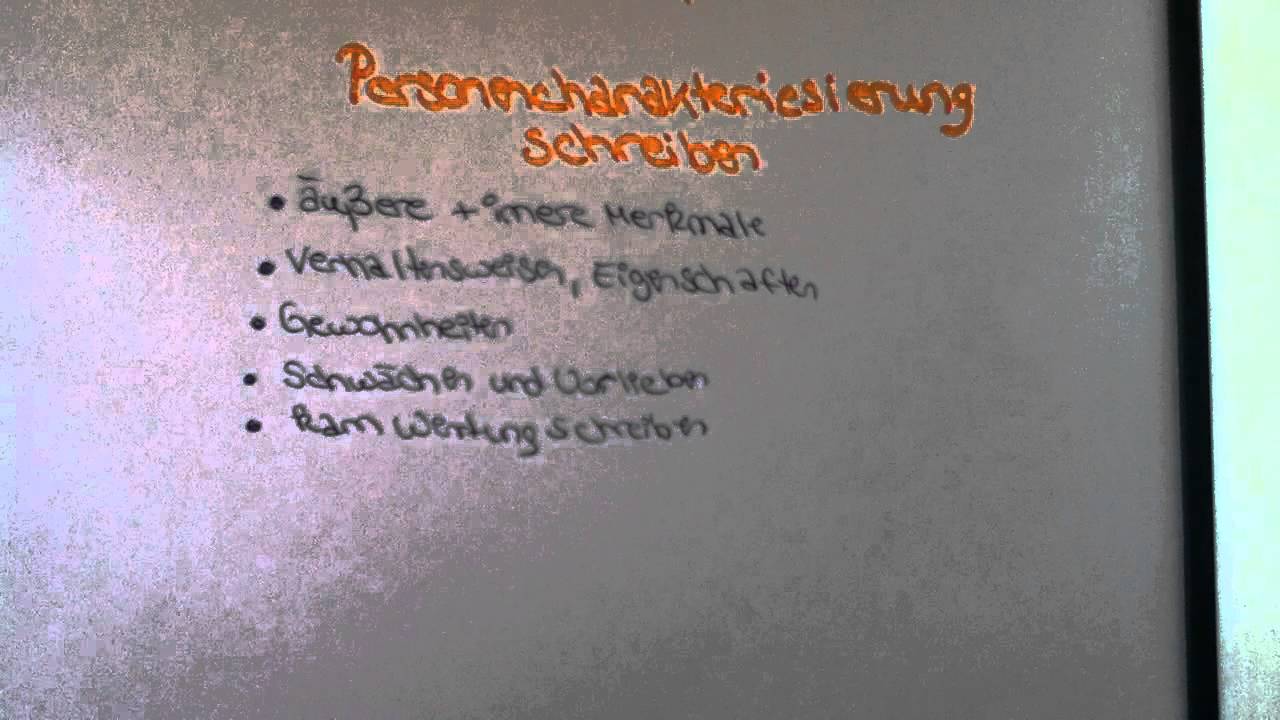 Personencharakteriesierung
schreiben
• äußere + innere Merkmale
• Verhaltensweisen, Eigenschaften
• Gewohnheiten
• Schwächen und Vorlieben
• kann Wertung schreiben